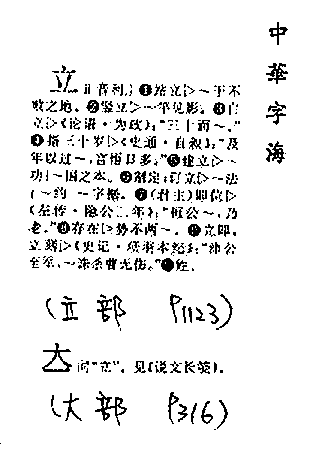 中華字海
立 lì 音利。❶站立▷~于不
败之地。❷竖立▷~竿见影。❸自
立▷《论语·为政》:"三十而~。"
❹指三十岁▷《史通·自叙》:"及
年以过~,言悟日多。"❺建立▷~
功|~国之本。❻制定;订立▷~法
|~约|~字据。❼(君主)即位▷
《左传·隐公三年》:"桓公~,乃
老。"❽存在▷势不两~。❾立即,
立刻▷《史记·项羽本纪》:"沛公
至军,~诛杀曹无伤。"❿姓。
(立部 P1123)
同"立"。见《说文长笺》。
(大部 P316)